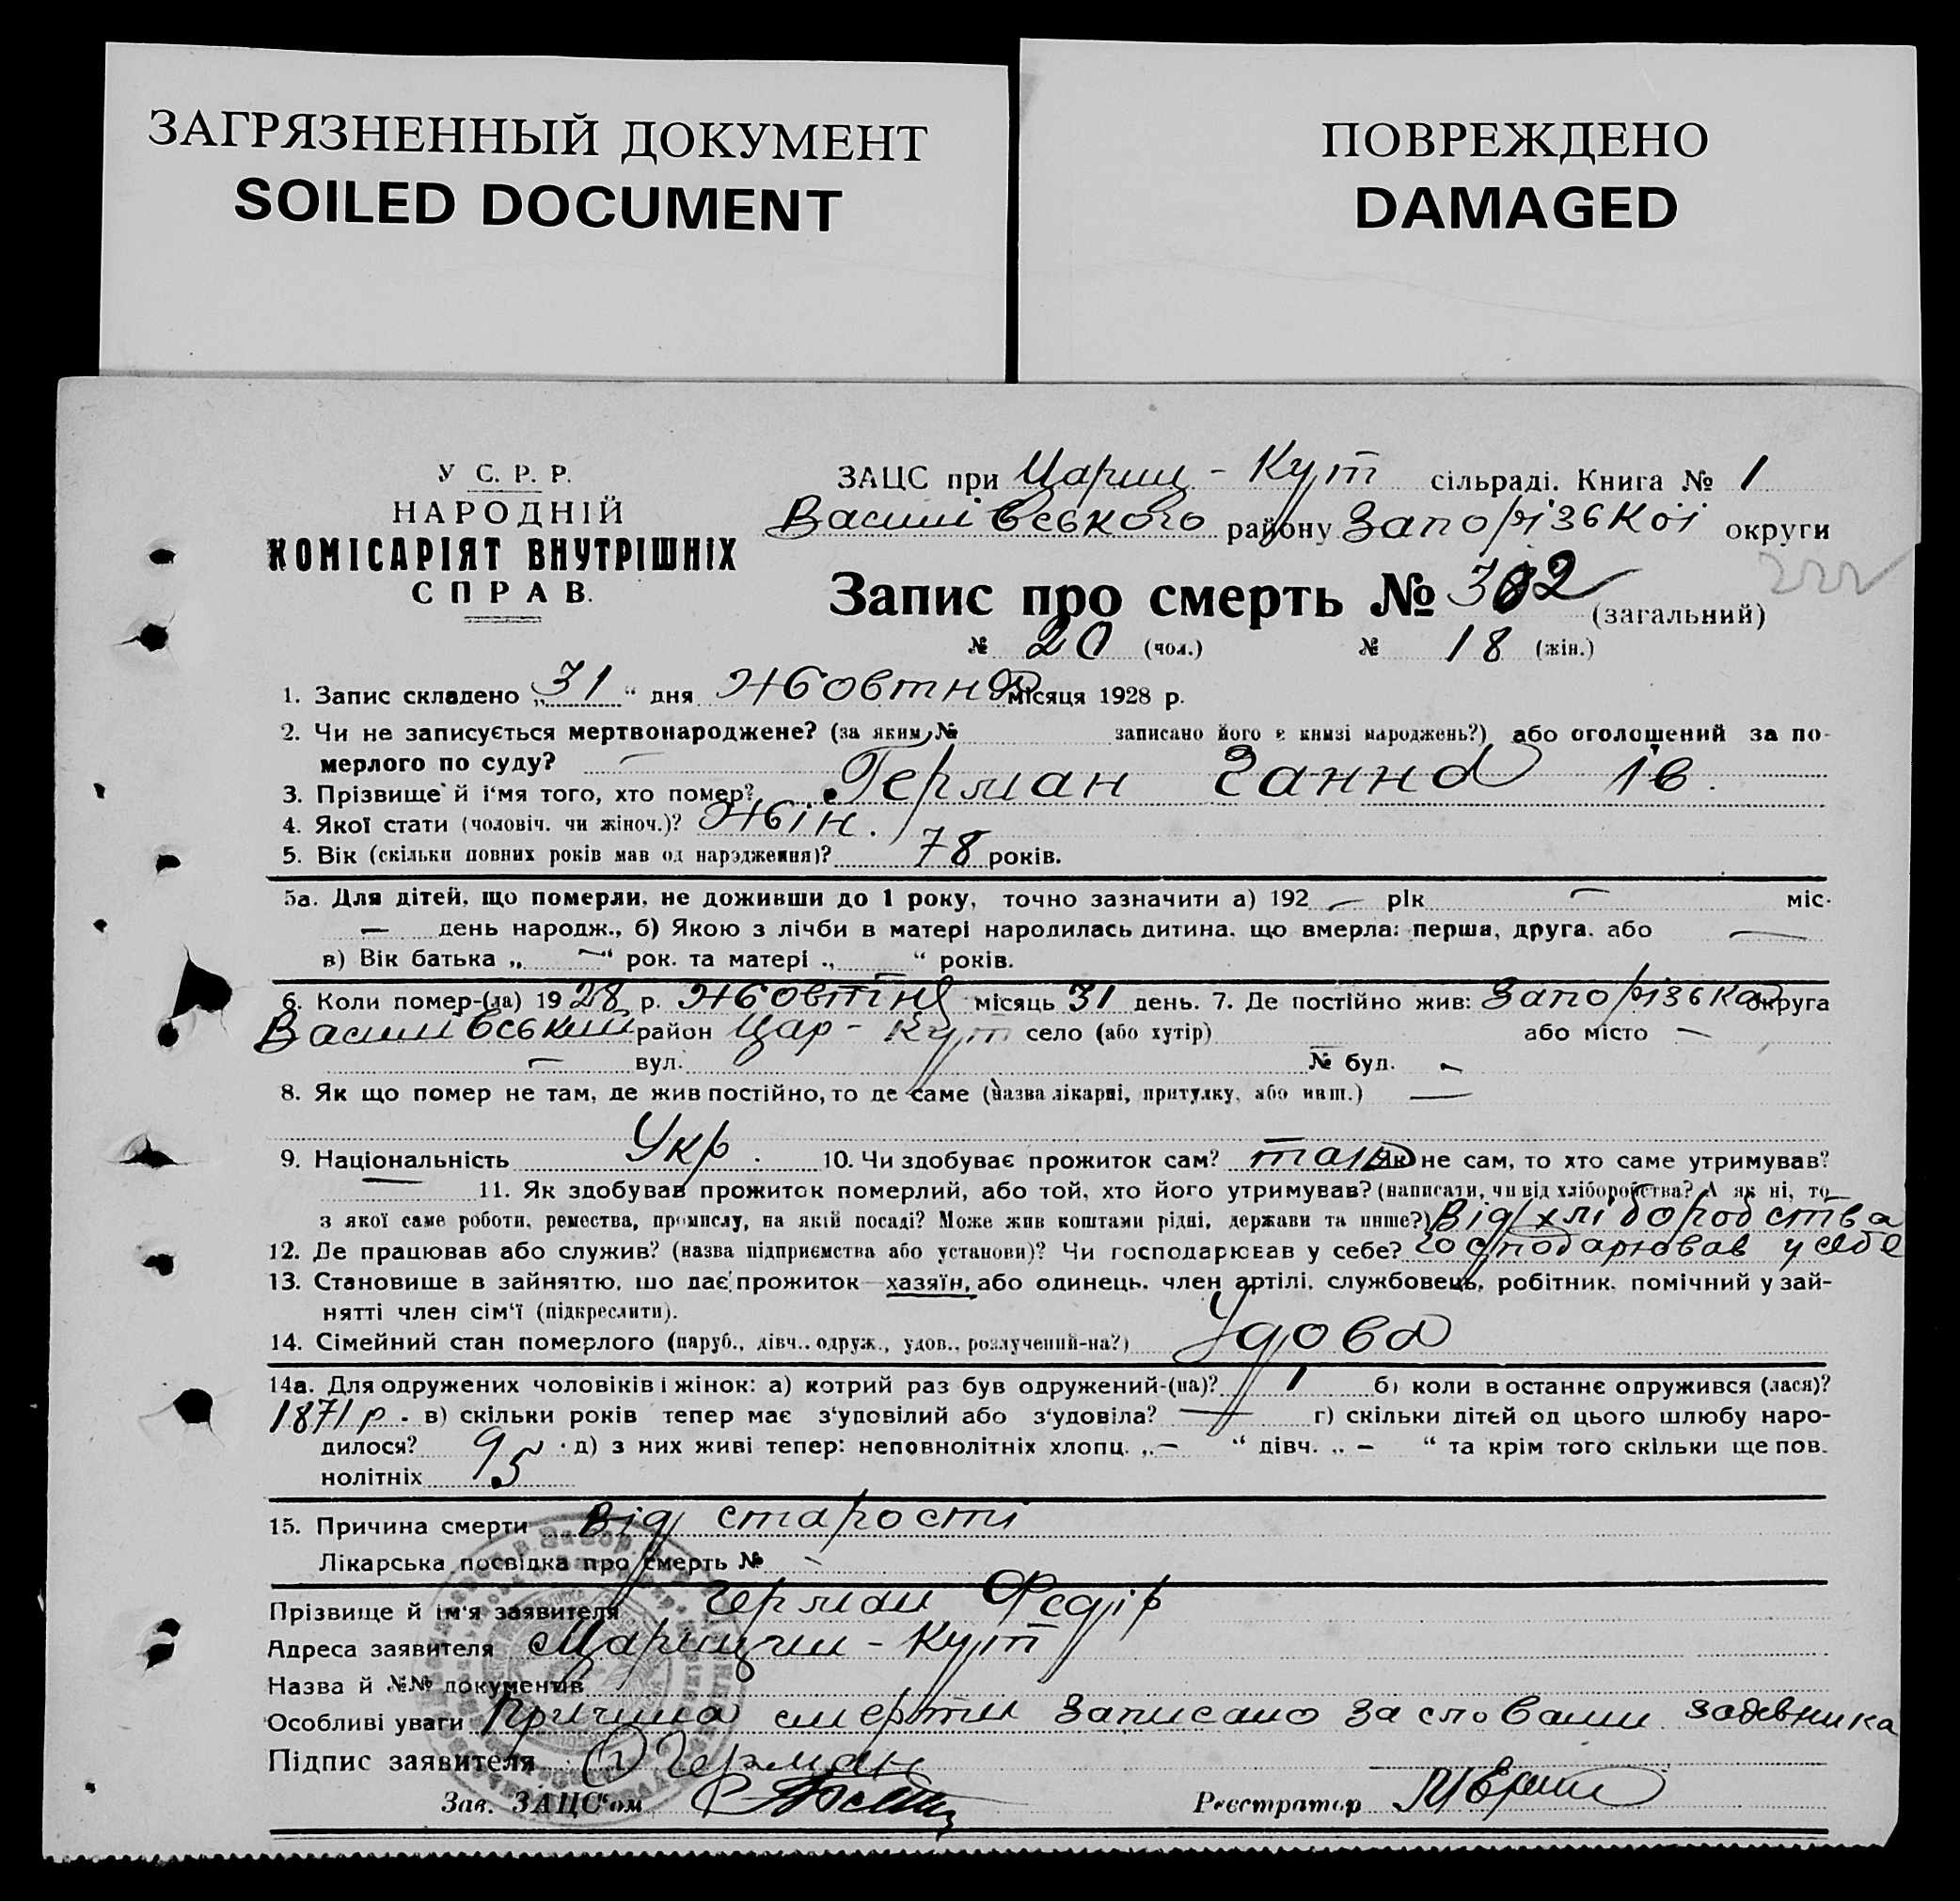 ЗАГРЯЗНЕННЫЙ ДОКУМЕНТ
SOILED DOCUMENT
ПОВРЕЖДЕНО
DAMAGED
У С. Р. Р.
НАРОДНІЙ
КОМІСАРІЯТ ВНУТРІШНІХ
СПРАВ.
ЗАЦС при Цариц - Кут сільраді. Книга № 1
Василівського району Запорізької округи
Запис про смерть № 302 (загальний)
222
№ 20 (чол.) № 18 (жін.)
1. Запис складено „31“ дня Жовтня місяця 1928 р.
2. Чи не записується мертвонароджене? (за яким № записано його в книзі народжень?) або оголошений за по-
мерлого по суду? —
3. Прізвище й і'мя того, хто помер? Герман Ганна Ів.
4. Якої стати (чоловіч. чи жіноч.)? Жін.
5. Вік (скільки повних років мав од народження)? 78 років.
5а. Для дітей, що померли, не доживши до 1 року, точно зазначити а) 192 — рік — міс.
— день народж., б) Якою з лічби в матері народилась дитина, що вмерла: перша, друга, або —
в) Вік батька „ — “ рок. та матері „ — “ років.
6. Коли помер-(ла) 1928 р. Жовтня місяць 31 день. 7. Де постійно жив: Запорізька округа
Василівський район Цар - Кут село (або хутір) або місто —
— вул. № буд. —
8. Як що помер не там, де жив постійно, то де саме (назва лікарні, притулку, або инш.) —
9. Національність Укр. 10. Чи здобуває прожиток сам? так Як не сам, то хто саме утримував?
11. Як здобував прожиток померлий, або той, хто його утримував? (написати, чи від хліборобства? А як ні, то
з якої саме роботи, ремества, промислу, на якій посаді? Може жив коштами рідні, держави та инше?) Від хліборобства
12. Де працював або служив? (назва підприємства або установи)? Чи господарював у себе? господарював у себе
13. Становище в зайняттю, що дає прожиток—хазяїн, або одинець, член артілі, службовець, робітник, помічний у зай-
нятті член сім'ї (підкреслити).
14. Сімейний стан померлого (паруб., дівч., одруж., удов., розлучений-на?) Удова
14а. Для одружених чоловіків і жінок: а) котрий раз був одружений-(на)? 1 б) коли в останнє одружився (лася)?
1871 р. в) скільки років тепер має з'удовілий або з'удовіла? — г) скільки дітей од цього шлюбу наро-
дилося? 9 д) з них живі тепер: неповнолітніх хлопц. „ — “ дівч. „ — “ та крім того скільки ще пов.
нолітніх 5
15. Причина смерти Від старости
Лікарська посвідка про смерть № —
Прізвище й ім'я заявителя Герман Федір
Адреса заявителя Царицин - Кут
Назва й №№ документів
Особливі уваги Причина смерти записано за словами заявника
Підпис заявителя Ф Герман
Зав. ЗАЦС'ом
Реєстратор